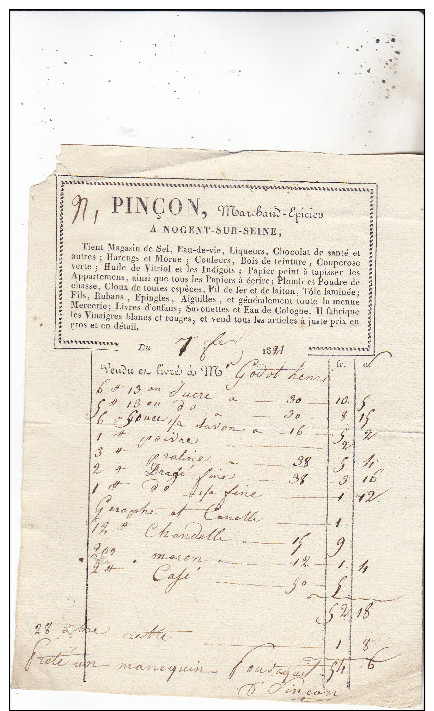 PINÇON, Marchand-Epicier
A NOGENT-SUR-SEINE,
Tient Magasin de Sel, Eau-de-vie, Liqueurs, Chocolat de santé et
autres; Harengs et Morue; Couleurs, Bois de teinture, Couperose
verte; Huile de Vitriol et les Indigots; Papier peint à tapisser les
Appartemens, ainsi que tous les Papiers à écrire; Plomb et Poudre de
chasse, Cloux de toutes espèces, Fil de fer et de laiton, Tôle laminée;
Fils, Rubans, Epingles, Aiguilles, et généralement toute la menue
Mercerie; Livres d'enfans; Savonettes et Eau de Cologne. Il fabrique
les Vinaigres blancs et rouges, et vend tous les articles à juste prix en
gros et en détail.
Du 1821
Vendu et livré à Mr Godot
6 # 13 on Sucre a 30 10 5
5 # 13 on do a 30 8 15
6 savon a 16 5 2
1 # poivre 2
3 # praline a 38 5 4
2 # Dragé fine 38 3 16
1 # do fine 1 12
et Canelle 1
12 # Chandelle 15 9
12 1 4
2 # Café 50 5
52 18
28 1 8
Prêté un manequin 54 6
Pinçon